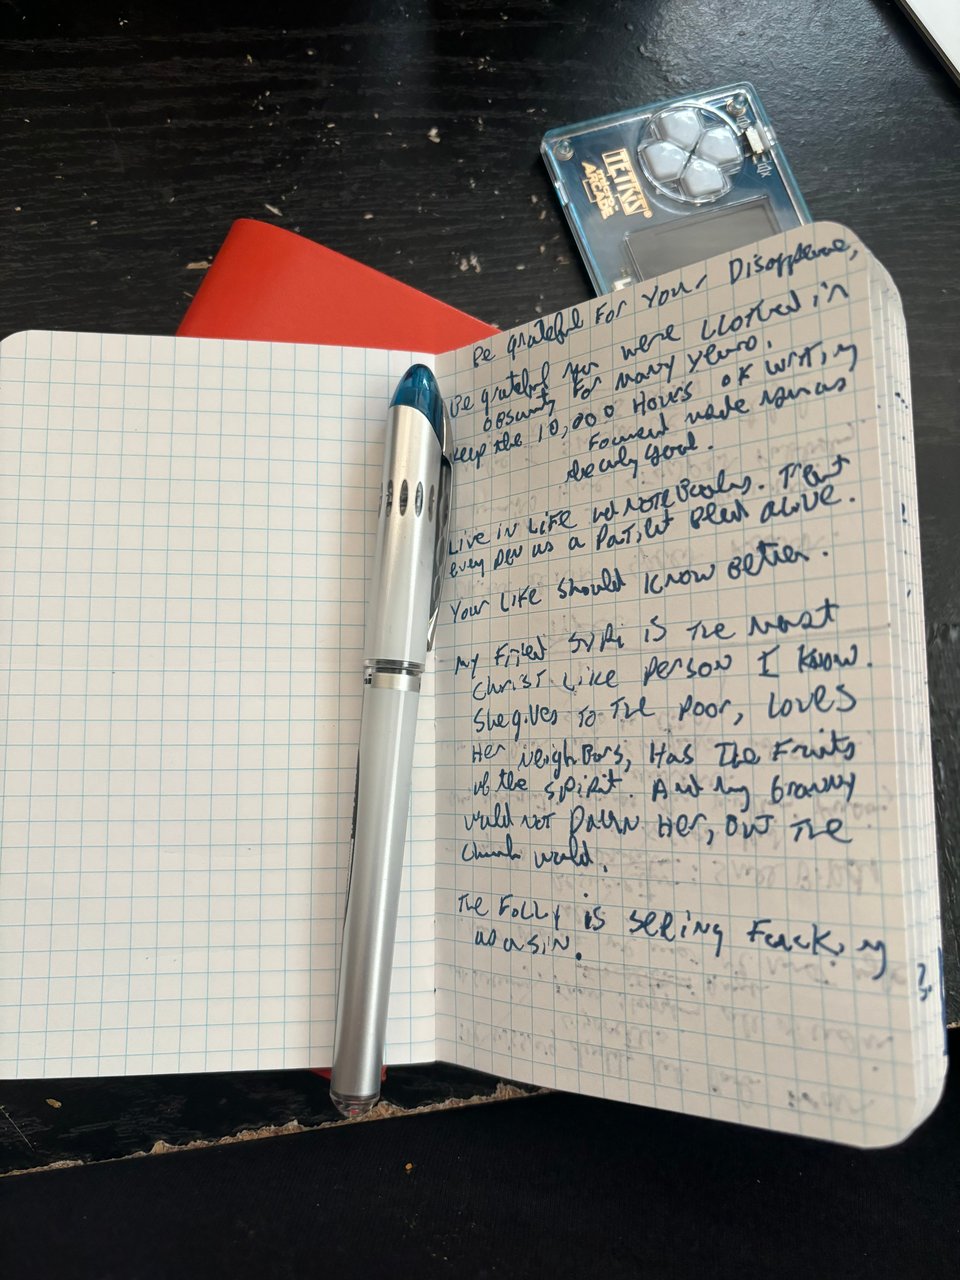 TETRIS®
micro
ARCADE
Be grateful For Your
Be grateful you were clothed in
obscurity For Many years.
Keep the 10,000 Hours of writing
Focused
Live in Life not notebooks. Treat
every pen as a Patient Bled alive.
Your Life Should Know Better.
My Friend is The most
Christ Like Person I Know.
She gives To The Poor, Loves
Her neighbors, Has The Fruits
of the Spirit. And my Granny
would not Damn Her, But The
Church would.
The Folly is seeing Fucking
as a sin.